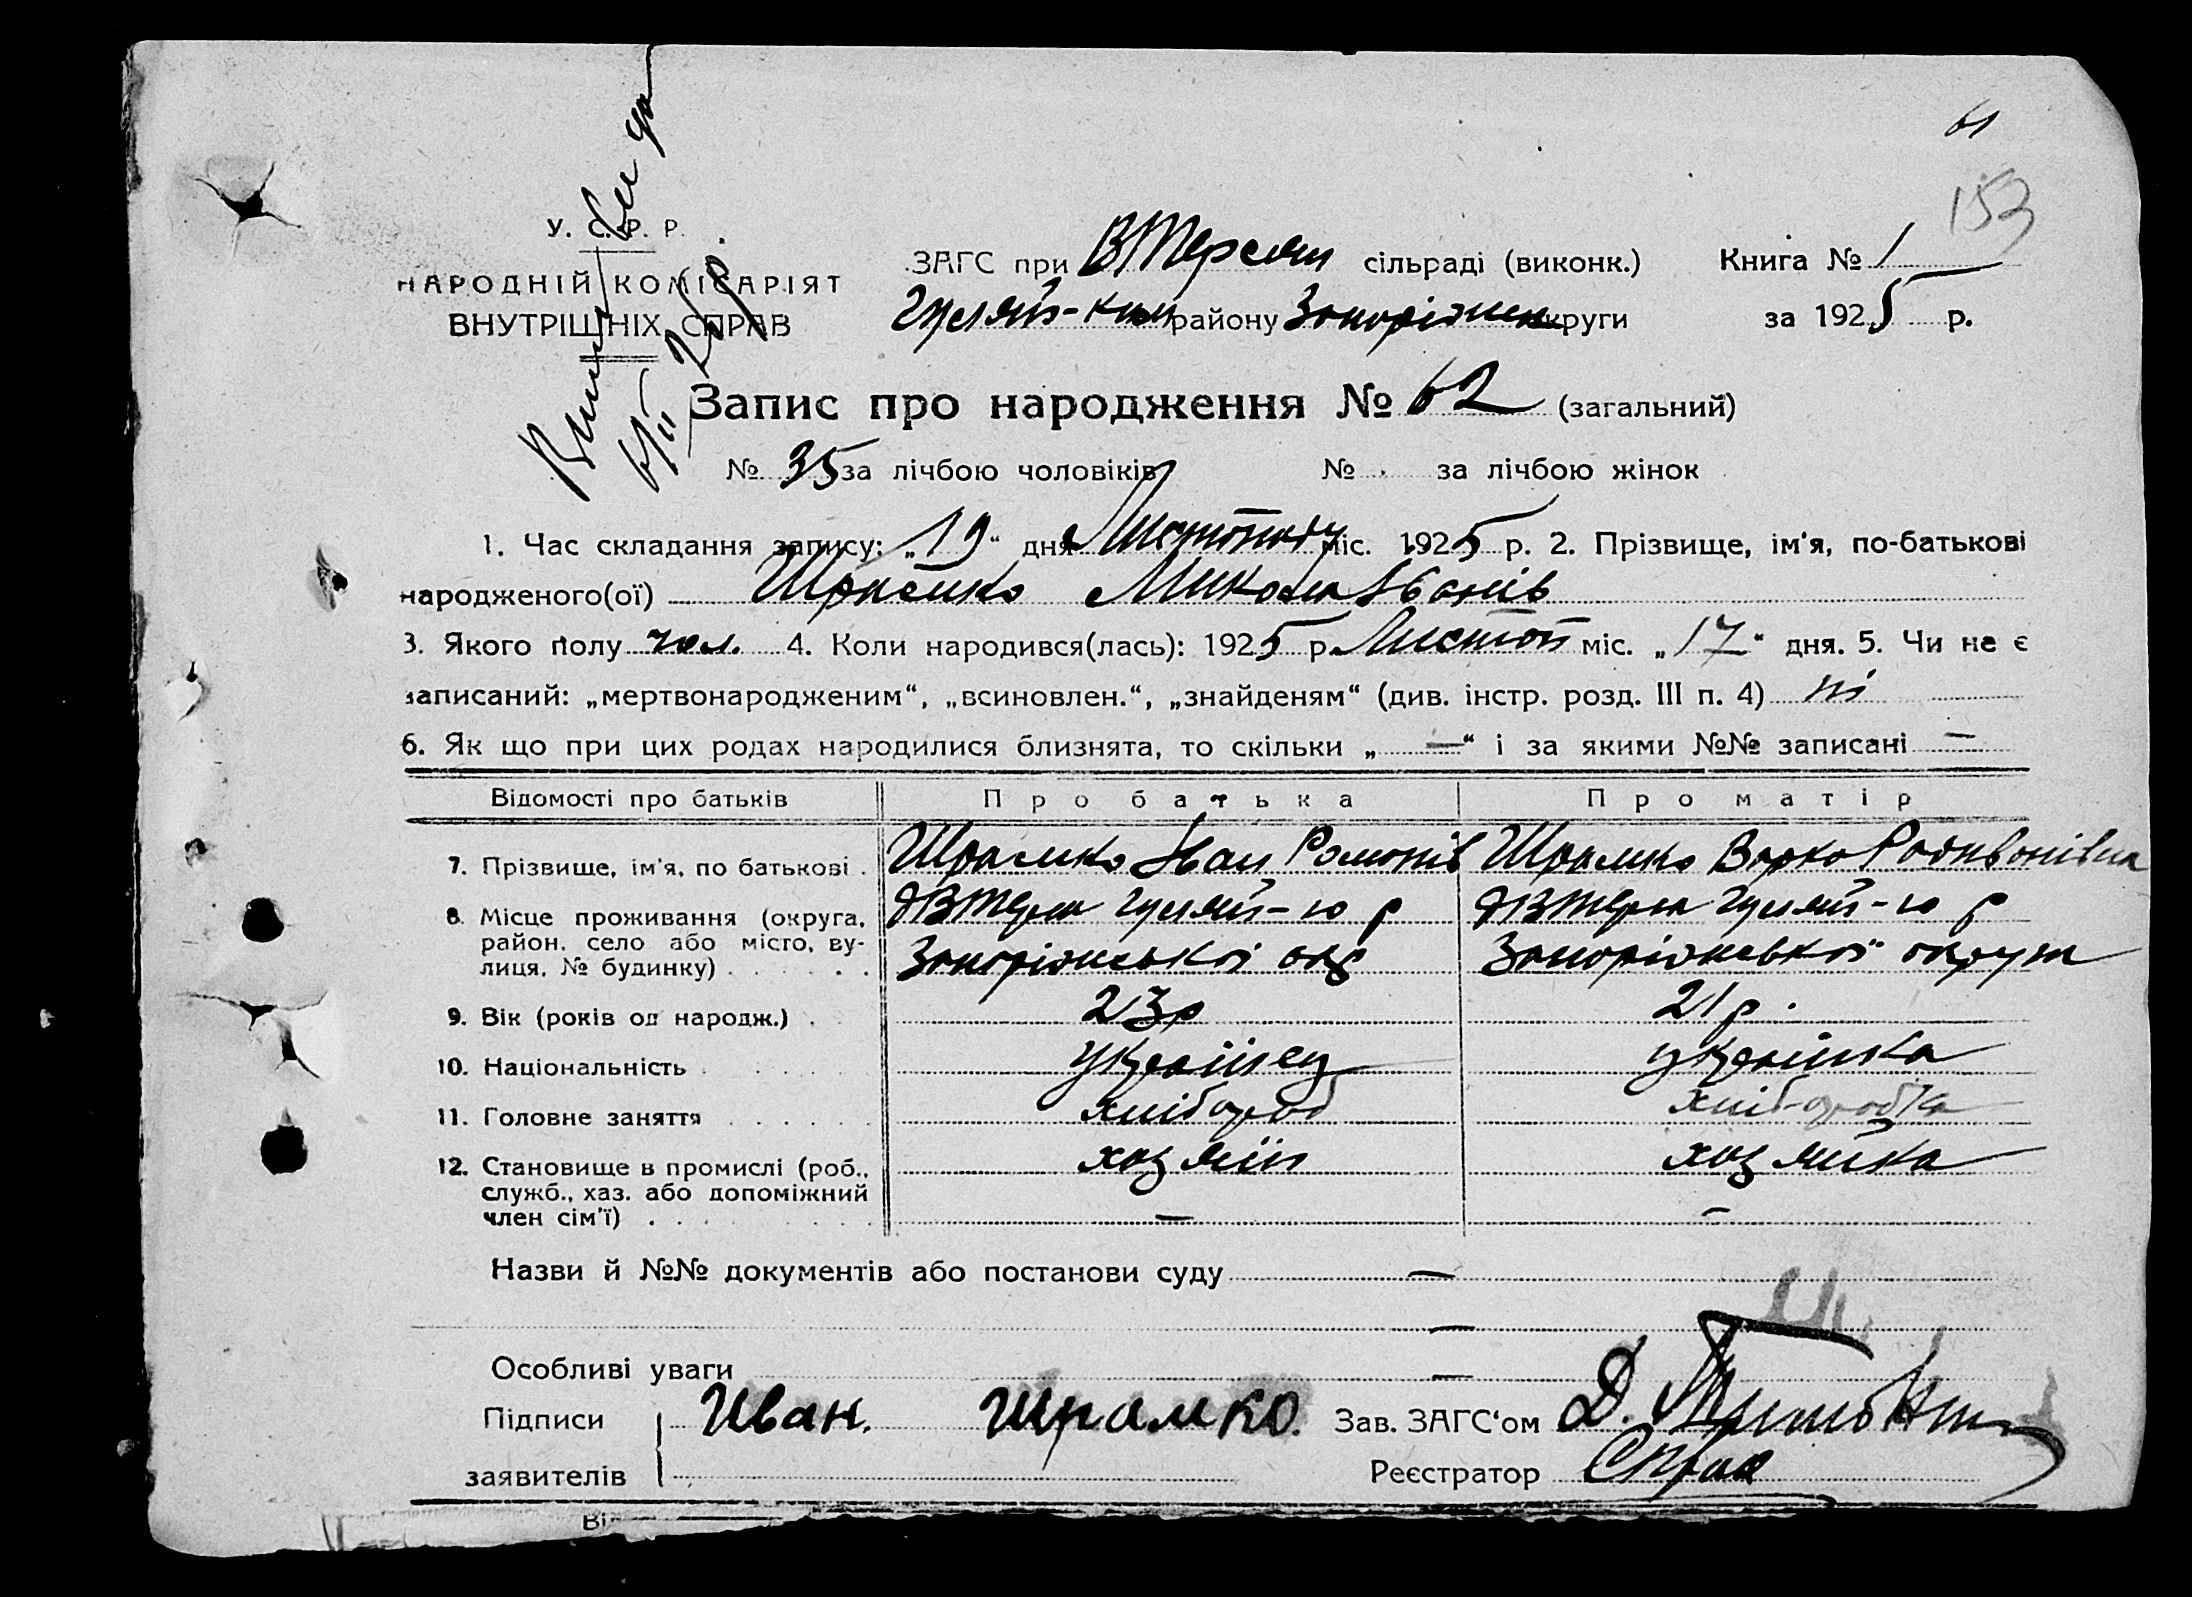 61
153
У. С. Р. Р.
НАРОДНІЙ КОМІСАРІЯТ
ВНУТРІШНІХ СПРАВ
ЗАГС при ВТерсян сільраді (виконк.) Книга № 1
Гуляй-Пил району Запоріжськ округи за 1925 р.
Запис про народження № 62 (загальний)
№ 35 за лічбою чоловіків № за лічбою жінок
1. Час складання запису: „19“ дня Листопаду міс. 1925 р. 2. Прізвище, ім'я, по-батькові
народженого(ої) Шрамко Микола Іванів
3. Якого полу чол. 4. Коли народився(лась): 1925 р. Листоп міс. „17“ дня. 5. Чи не є
записаний: „мертвонародженим“, „всиновлен.“, „знайденям“ (див. інстр. розд. III п. 4) ні
6. Як що при цих родах народилися близнята, то скільки „—“ і за якими №№ записані —
Відомості про батьків Про батька Про матір
7. Прізвище, ім'я, по батькові . Шрамко Іван Романів Шрамко Варка
8. Місце проживання (округа, район, село або місто, вулиця, № будинку) Гуляй- р Запоріжської окр Гуляй- р Запоріжської округи
9. Вік (років од народж.) . 23р 21р.
10. Національність українец українка
11. Головне заняття хлібороб хліборобка
12. Становище в промислі (роб., служб., хаз. або допоміжний член сім'ї) хазяїн хазяйка
— —
Назви й №№ документів або постанови суду —
—
Особливі уваги —
Підписи Иван. Шрамко. Зав. ЗАГС'ом Д.
заявителів Реєстратор
Ві